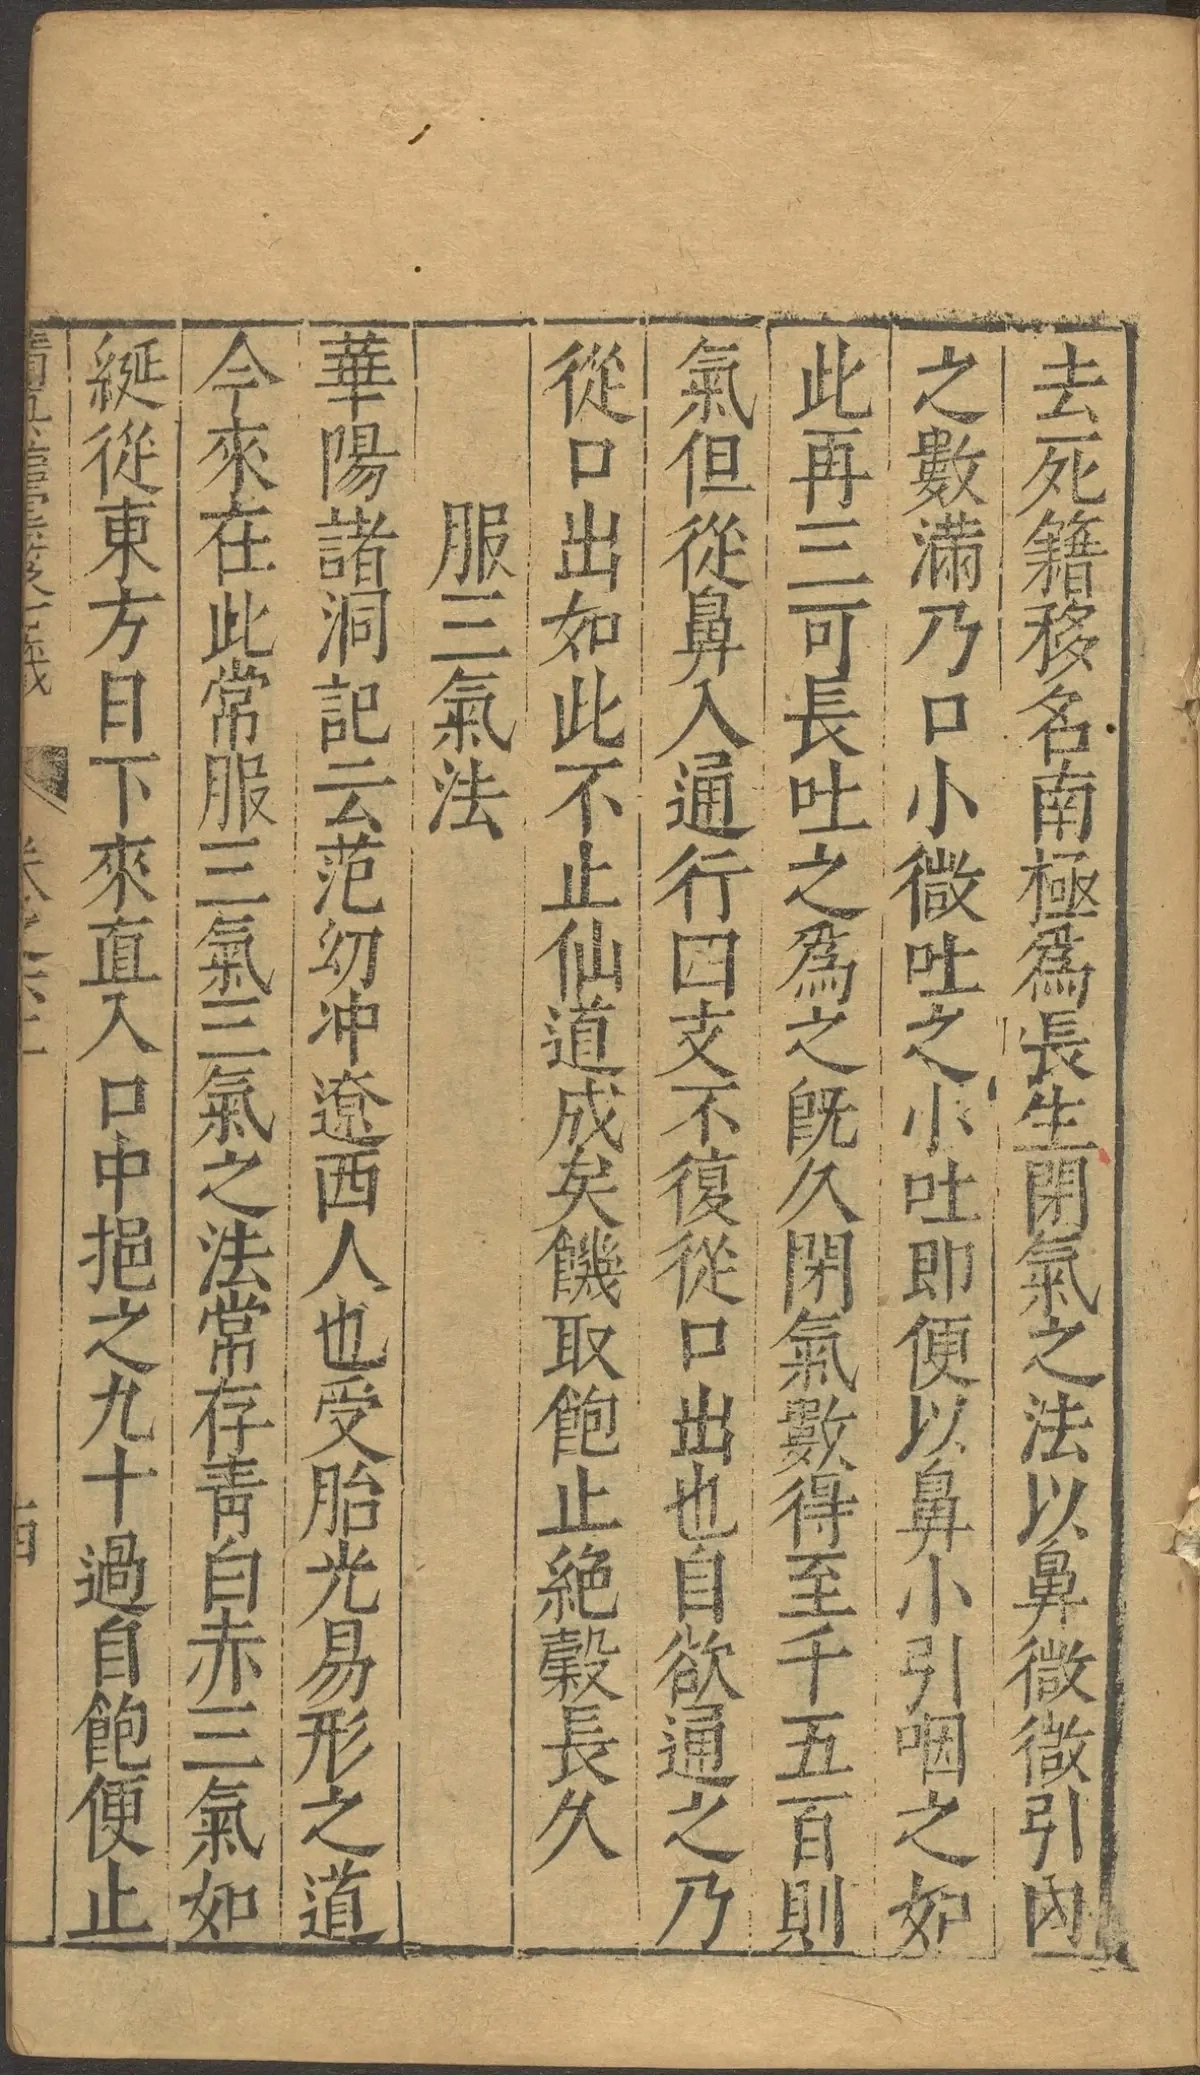 去死籍移名南極爲長生閉氣之法以鼻微微引内
之數滿乃口小微吐之小吐即便以鼻小引咽之如
此再三可長吐之爲之旣久閉氣數得至千五百則
氣但從鼻入通行四支不復從口出也自欲通之乃
從口出如此不止仙道成矣饑取飽止絶穀長久
服三氣法
華陽諸洞記云范幼冲遼西人也受胎光易形之道
今來在此常服三氣三氣之法常存青白赤三氣如
綖從東方目下來直入口中挹之九十過自飽便止